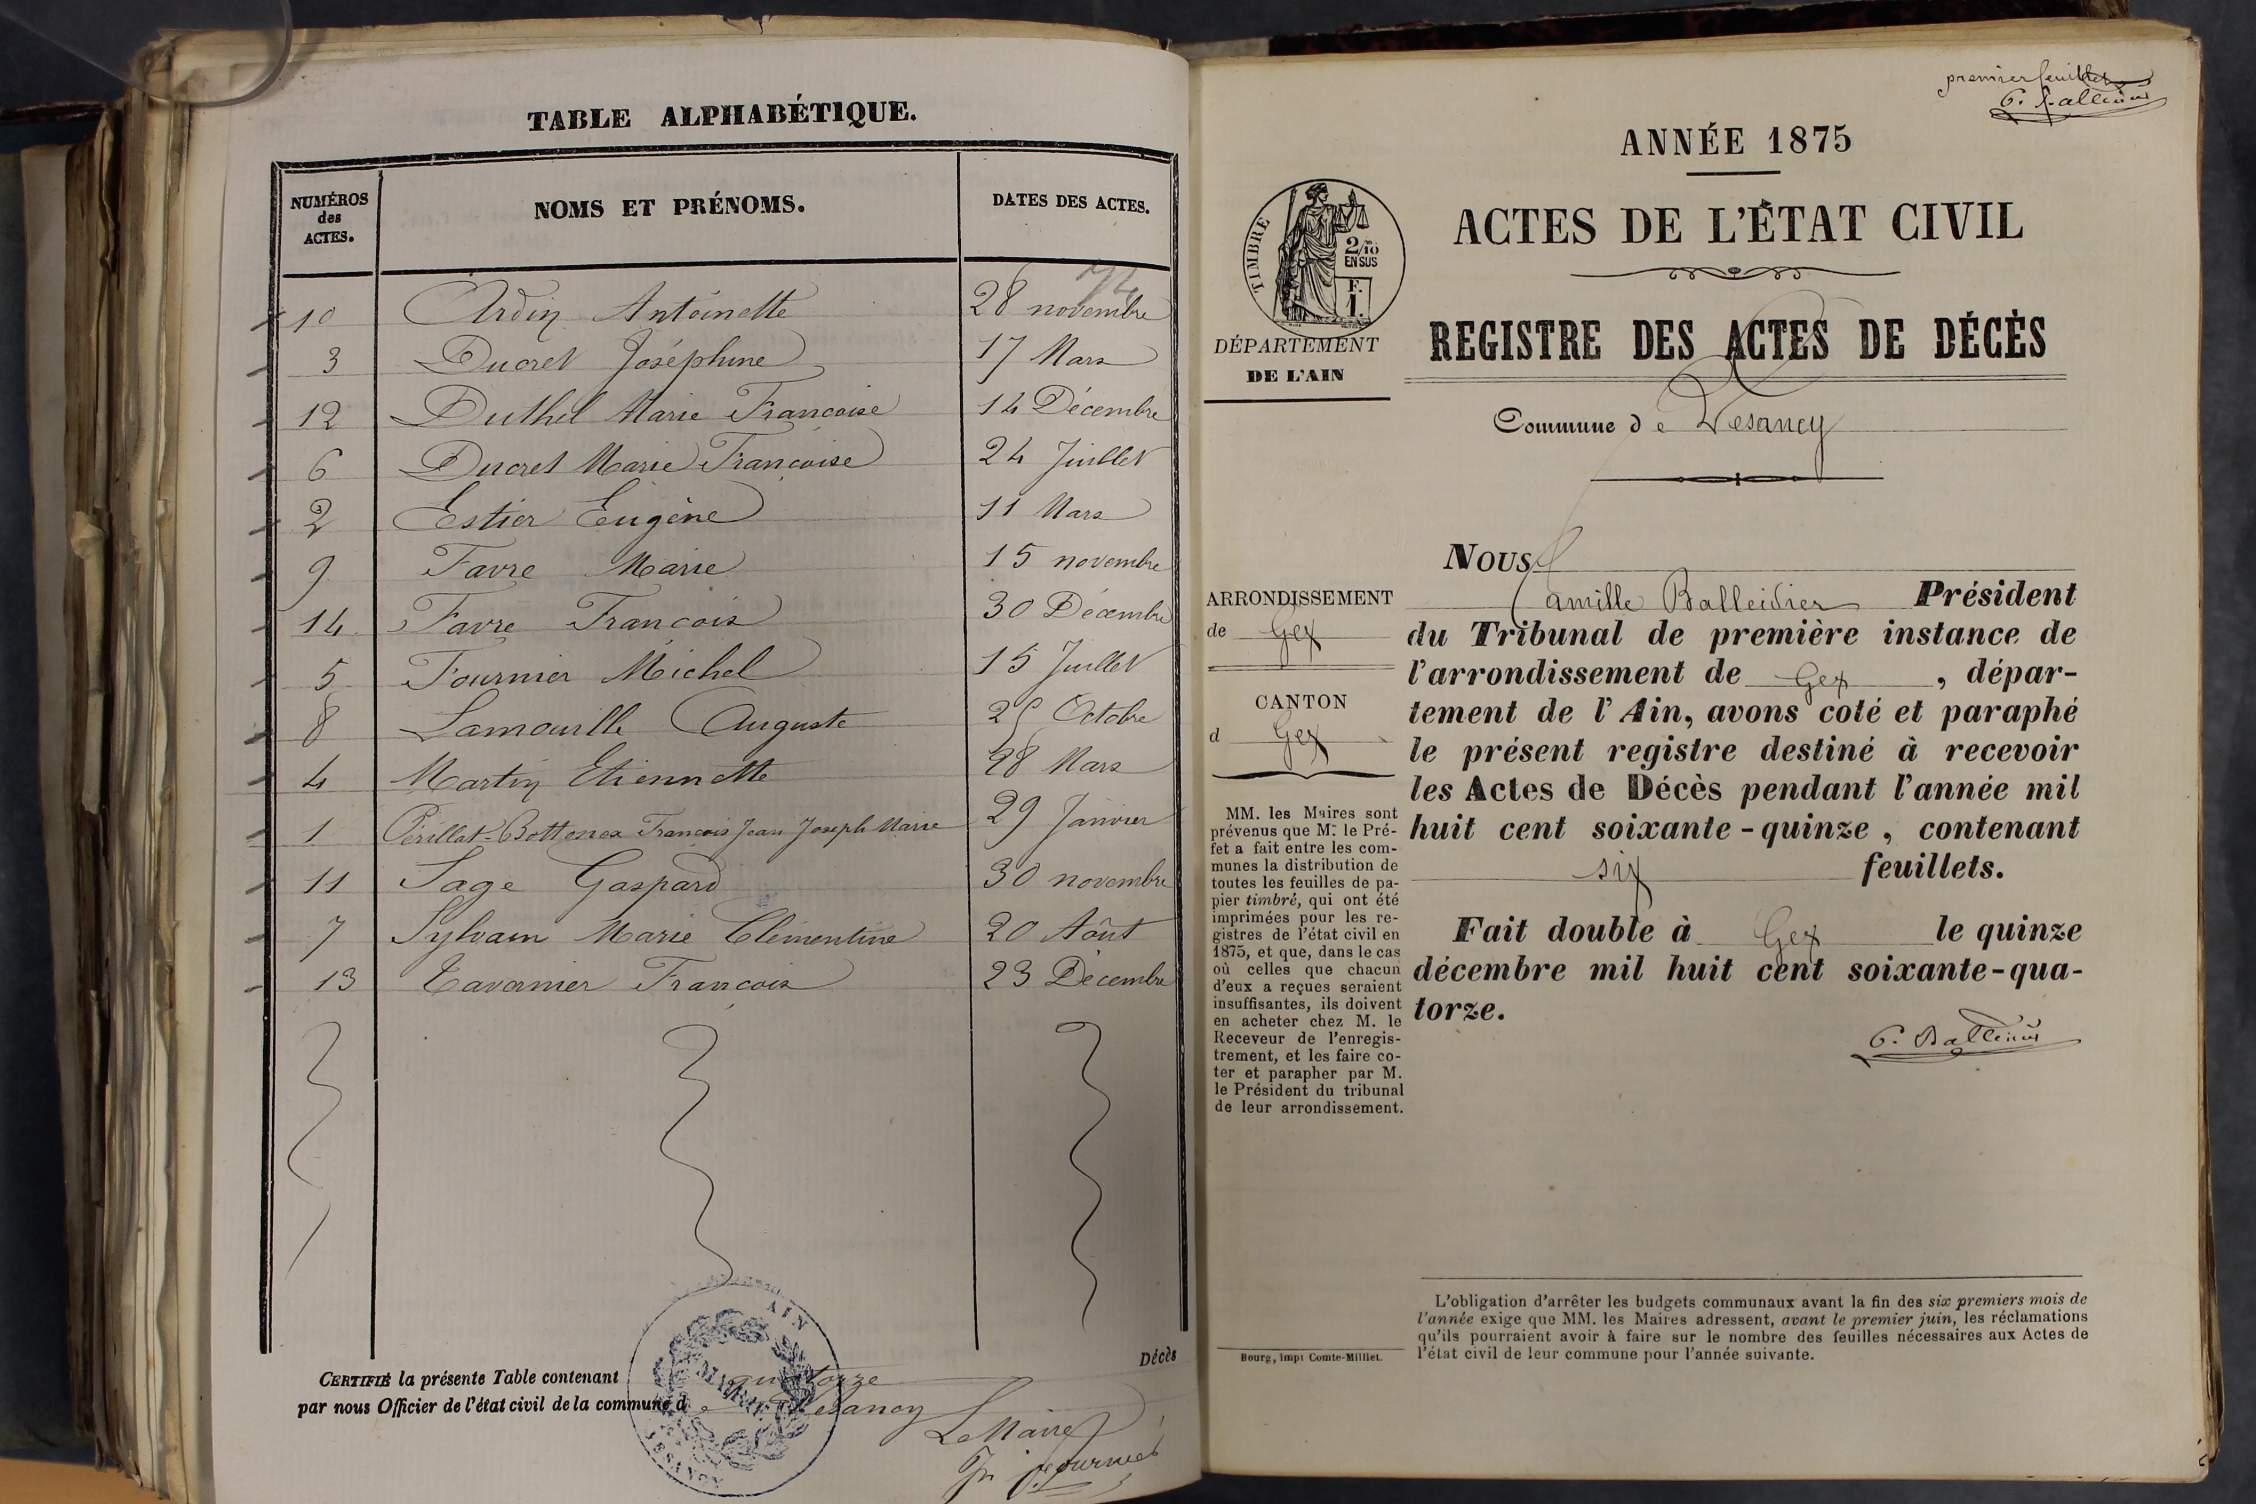 TABLE ALPHABÉTIQUE.
NUMÉROS des ACTES. NOMS ET PRÉNOMS. DATES DES ACTES.
74
10 Ardin Antoinette 28 novembre
3 Ducret Joséphine 17 Mars
12 Duthel Marie Françoise 14 Décembre
6 Ducret Marie Françoise 24 Juillet
2 Estier Eugène 11 Mars
9 Favre Marie 15 novembre
14 Favre François 30 Décembre
5 Fournier Michel 15 Juillet
8 Lamouille Auguste 25 Octobre
4 Martin Etiennette 28 Mars
1 Périllat-Bottonex François Jean Joseph Marie 29 Janvier
11 Sage Gaspard 30 novembre
7 Sylvain Marie Clémentine 20 Août
13 Tavernier François 23 Décembre
Décès
CERTIFIÉ la présente Table contenant quatorze
par nous Officier de l'état civil de la commune de Vesancy
Le Maire
Fournier
MAIRIE
AIN
VESANCY
premier feuillet
C. Balleidier
ANNÉE 1875
ACTES DE L'ÉTAT CIVIL
REGISTRE DES ACTES DE DÉCÈS
Commune de Vesancy
TIMBRE
2/10
EN SUS
F.
1.
DÉPARTEMENT
DE L'AIN
ARRONDISSEMENT
de Gex
CANTON
d Gex
MM. les Maires sont
prévenus que M. le Pré-
fet a fait entre les com-
munes la distribution de
toutes les feuilles de pa-
pier timbré, qui ont été
imprimées pour les re-
gistres de l'état civil en
1875, et que, dans le cas
où celles que chacun
d'eux a reçues seraient
insuffisantes, ils doivent
en acheter chez M. le
Receveur de l'enregis-
trement, et les faire co-
ter et parapher par M.
le Président du tribunal
de leur arrondissement.
Bourg, impr Comte-Milliet.
NOUS
Camille Balleidier Président
du Tribunal de première instance de
l'arrondissement de Gex, dépar-
tement de l'Ain, avons coté et paraphé
le présent registre destiné à recevoir
les Actes de Décès pendant l'année mil
huit cent soixante-quinze, contenant
six feuillets.
Fait double à Gex le quinze
décembre mil huit cent soixante-qua-
torze.
C. Balleidier
L'obligation d'arrêter les budgets communaux avant la fin des six premiers mois de
l'année exige que MM. les Maires adressent, avant le premier juin, les réclamations
qu'ils pourraient avoir à faire sur le nombre des feuilles nécessaires aux Actes de
l'état civil de leur commune pour l'année suivante.